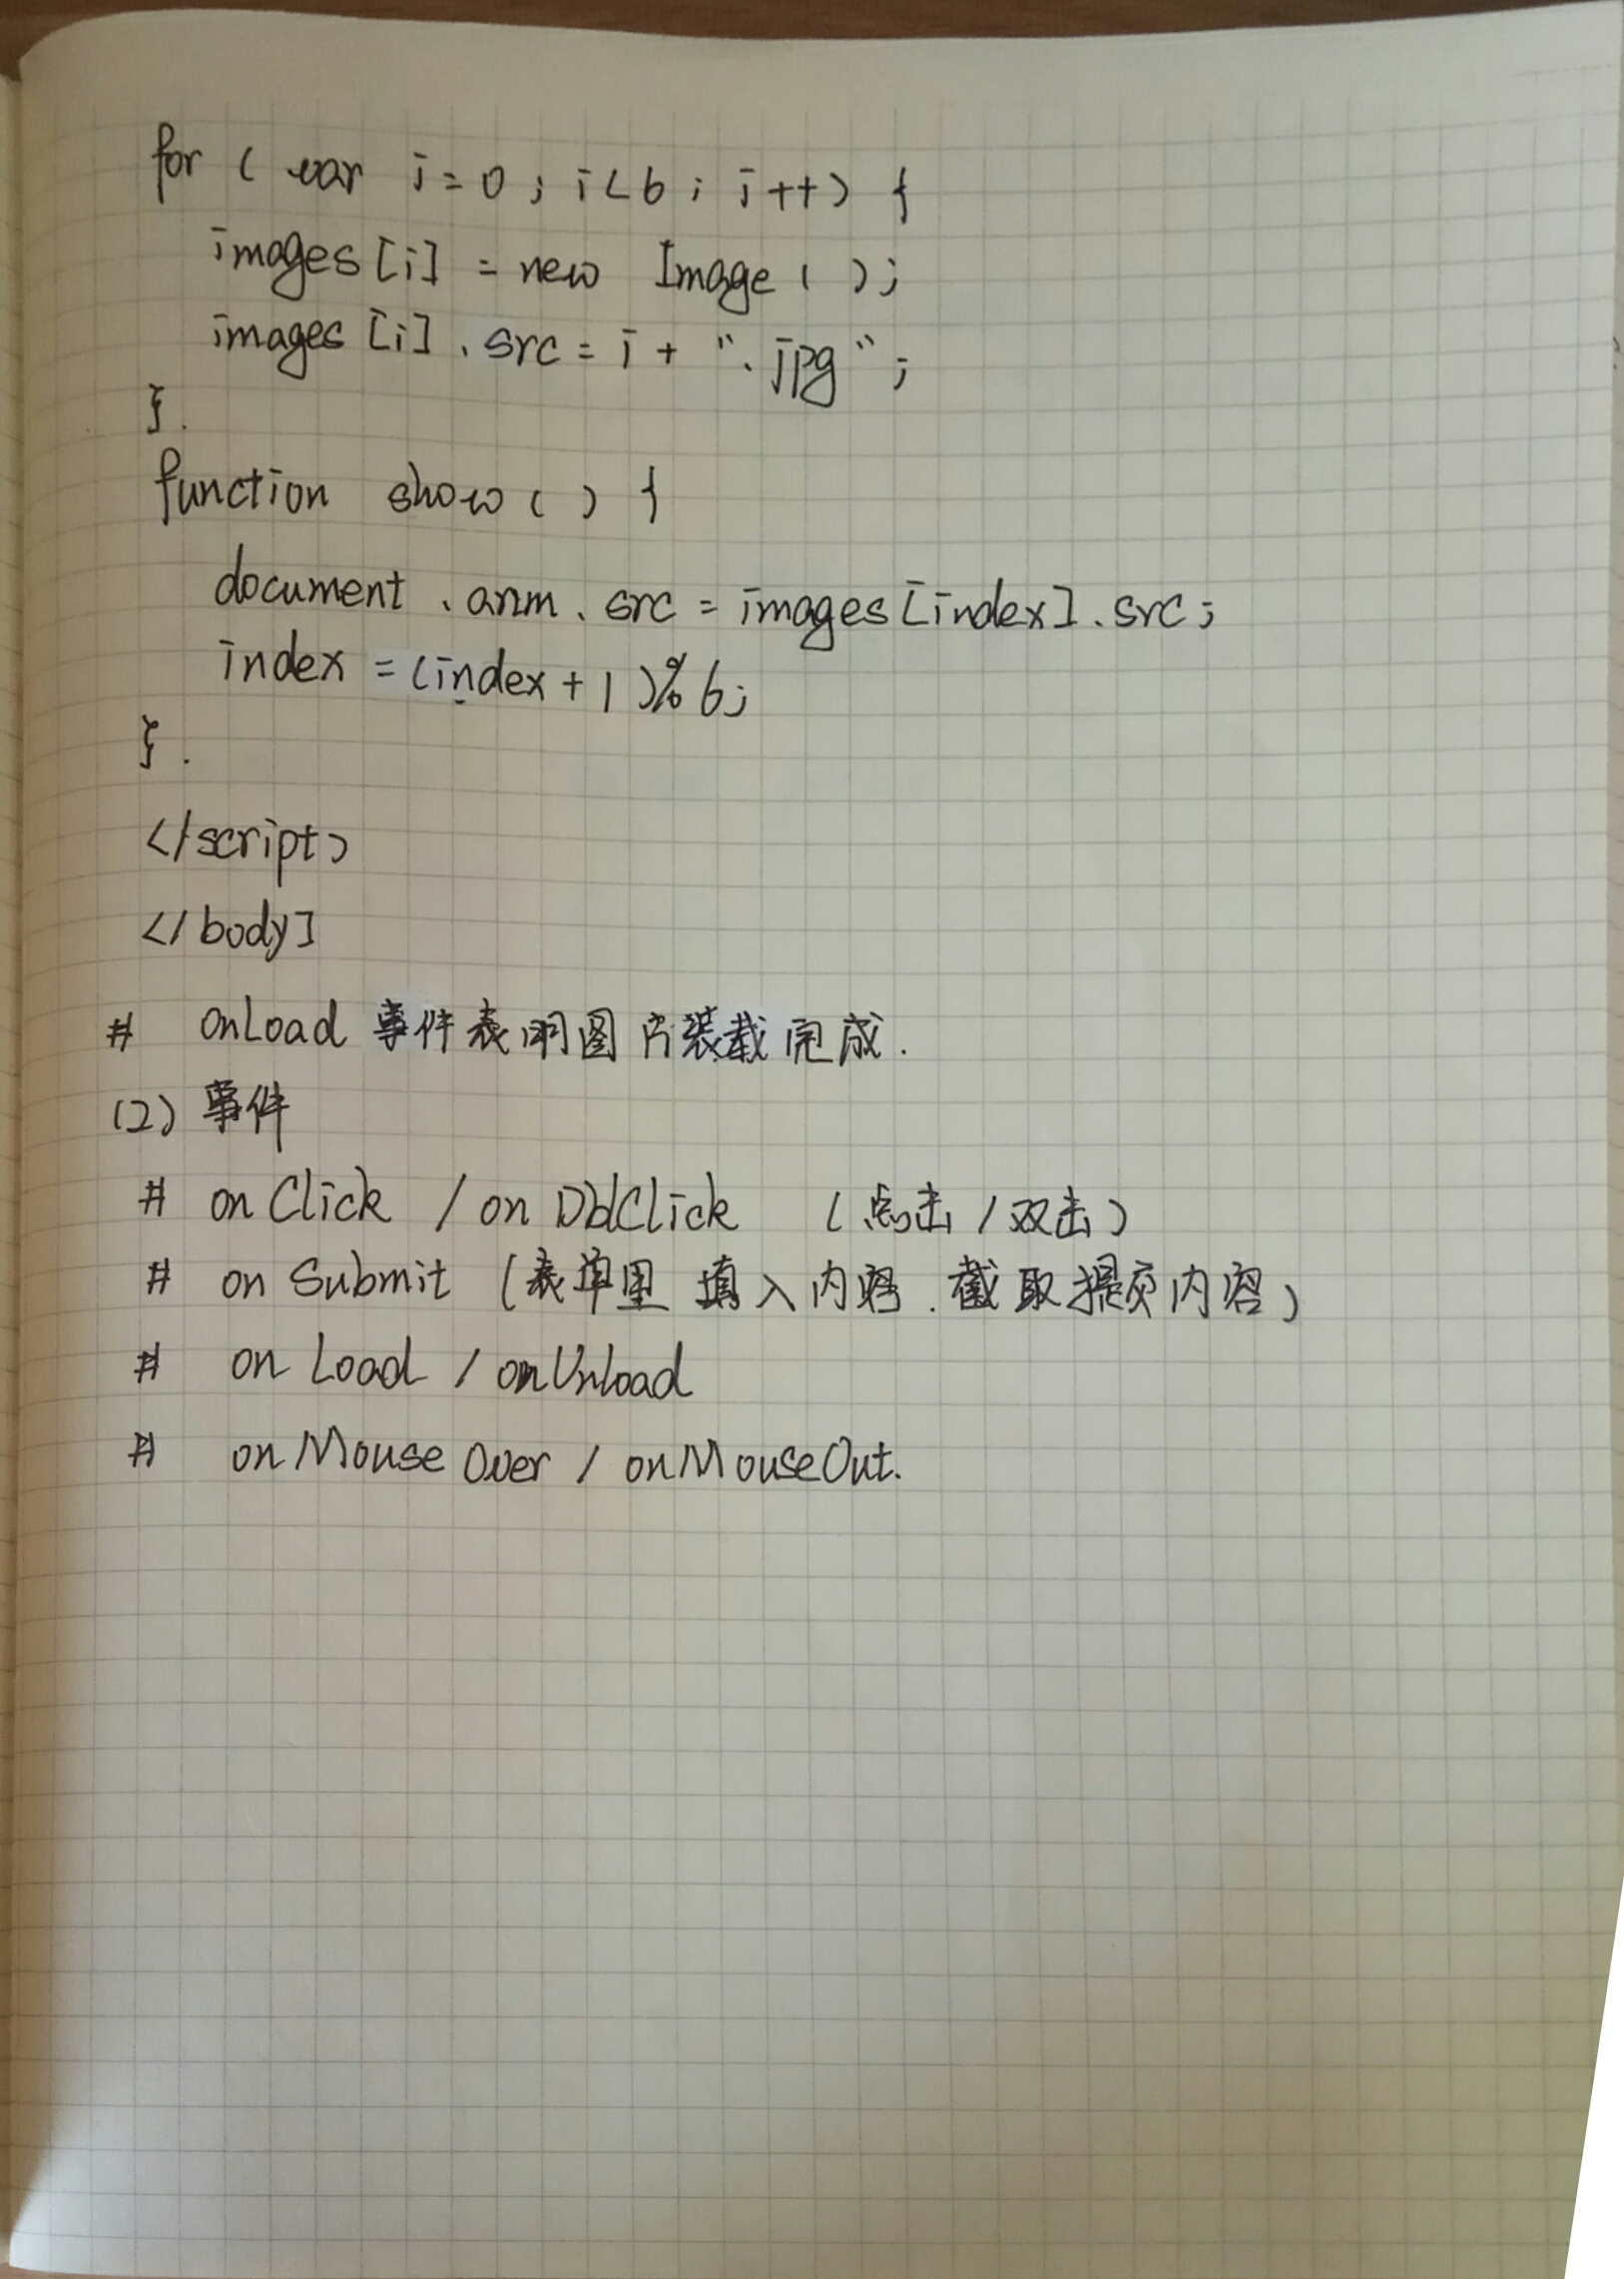 for ( var i=0 ; i<6 ; i++) {
images[i] = new Image ( );
images [i] . src = i + ".jpg";
}.
function show ( ) {
document . anm . src = images [index] . src;
index = (index + 1 )% 6;
}.
</script>
</body]
# onLoad 事件表明图片装载完成.
(2) 事件
# on Click / on DblClick (点击 / 双击)
# on Submit (表单里 填入内容. 截取提交内容)
# on Load / onUnload
# onMouse Over / onMouseOut.